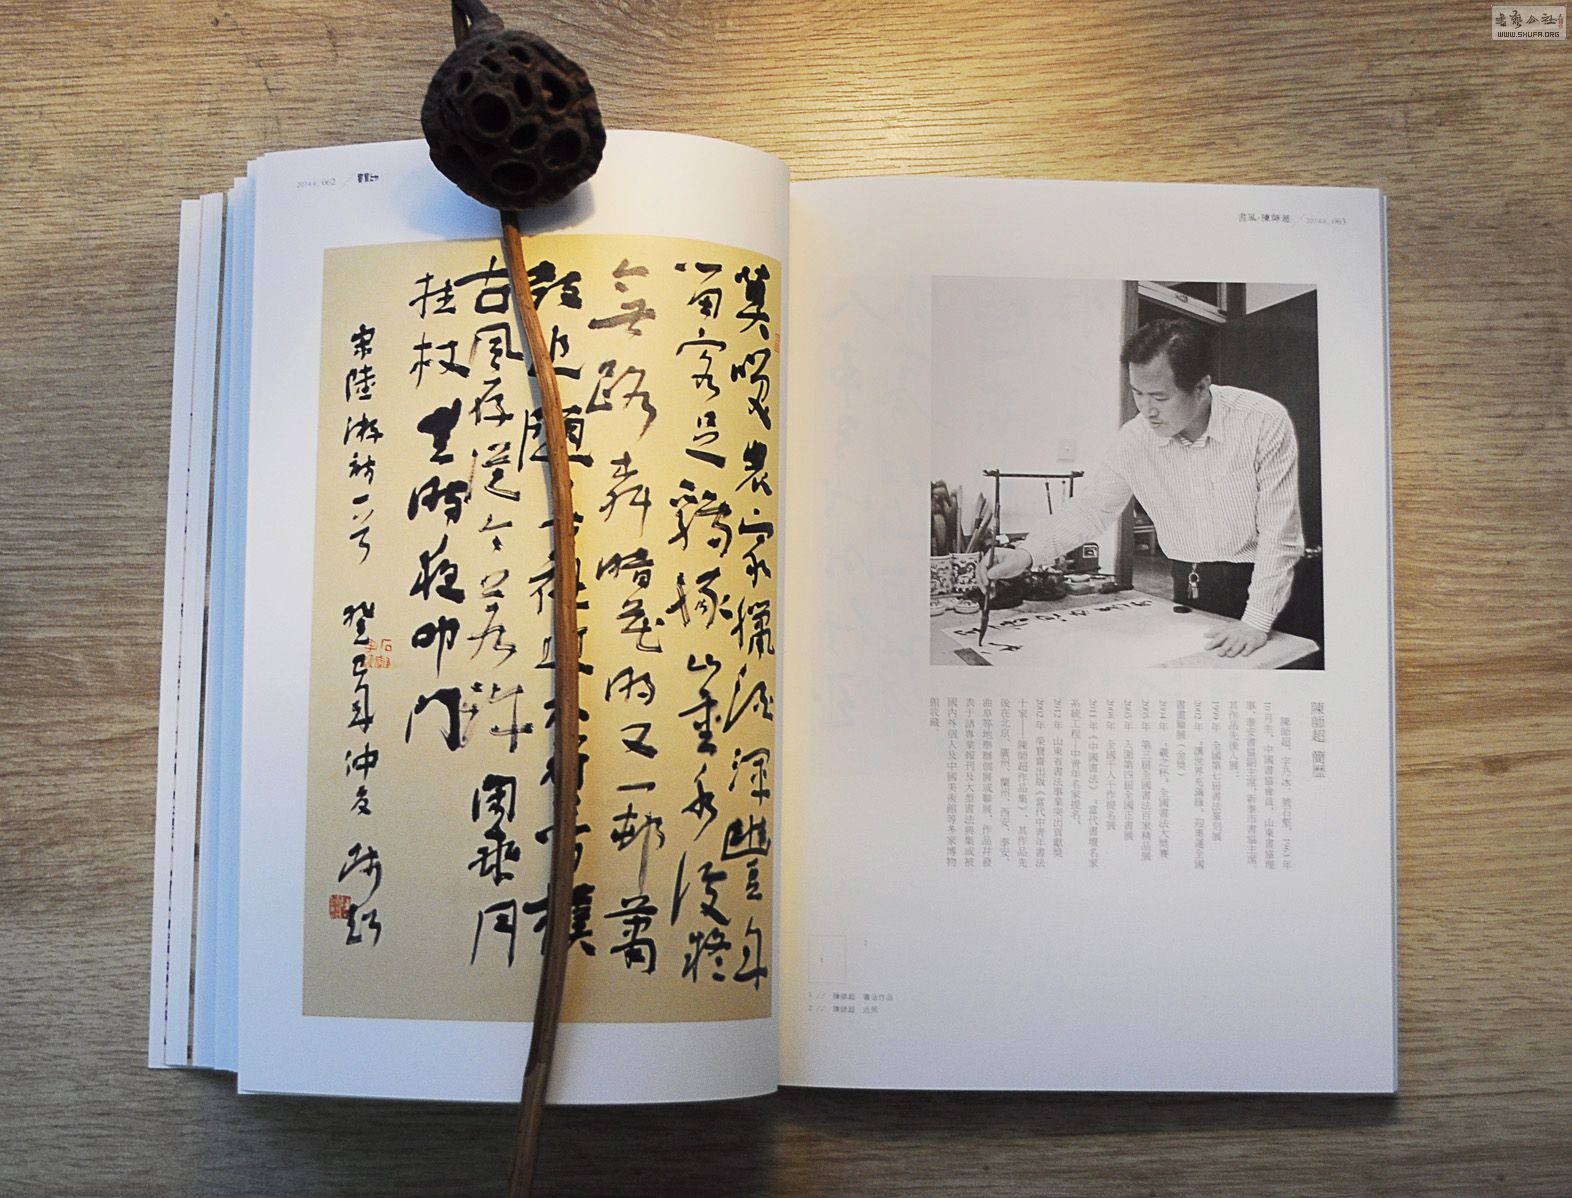 書藝公社
WWW.SHUFA.ORG
2014.4. /062
書風·陳師超 / 2014.4. /063
莫笑農家臘酒渾豐年
留客足鷄豚山重水復疑
無路
暗花明又一村蕭
鼓追隨
古風存從今若許閑乘月
拄杖無時夜叩門
宋陸游詩一首
癸巳年仲夏師超
陳師超 簡歷
陳師超，字乃冰，號石癡，1963年
10月生。中國書協會員，山東書協理
事，泰安書協副主席，新泰市書協主席。
其作品先後入展：
1999年 全國第七屆書法篆刻展
2002年 “讓世界充滿綠，迎奧運全國
書畫聯展（金獎）
2004年 “羲之杯”全國書法大獎賽
2005年 第三屆全國書法百家精品展
2005年 入選第四屆全國正書展
2006年 全國千人千作提名展
2011年《中國書法》“當代書壇名家
系統工程—中青年名家提名。
2012年 山東省書法事業突出貢獻獎
2002年 榮寶齋出版《當代中青年書法
十家——陳師超作品集》，其作品先
後在北京、廣州、蘭州、西安、泰安、
曲阜等地舉辦個展或聯展，作品并發
表于諸專業報刊及大型書法專集或被
國內外個人及中國美術館等多家博物
館收藏。
2
1
1 // 陳師超 書法作品
2 // 陳師超 近照